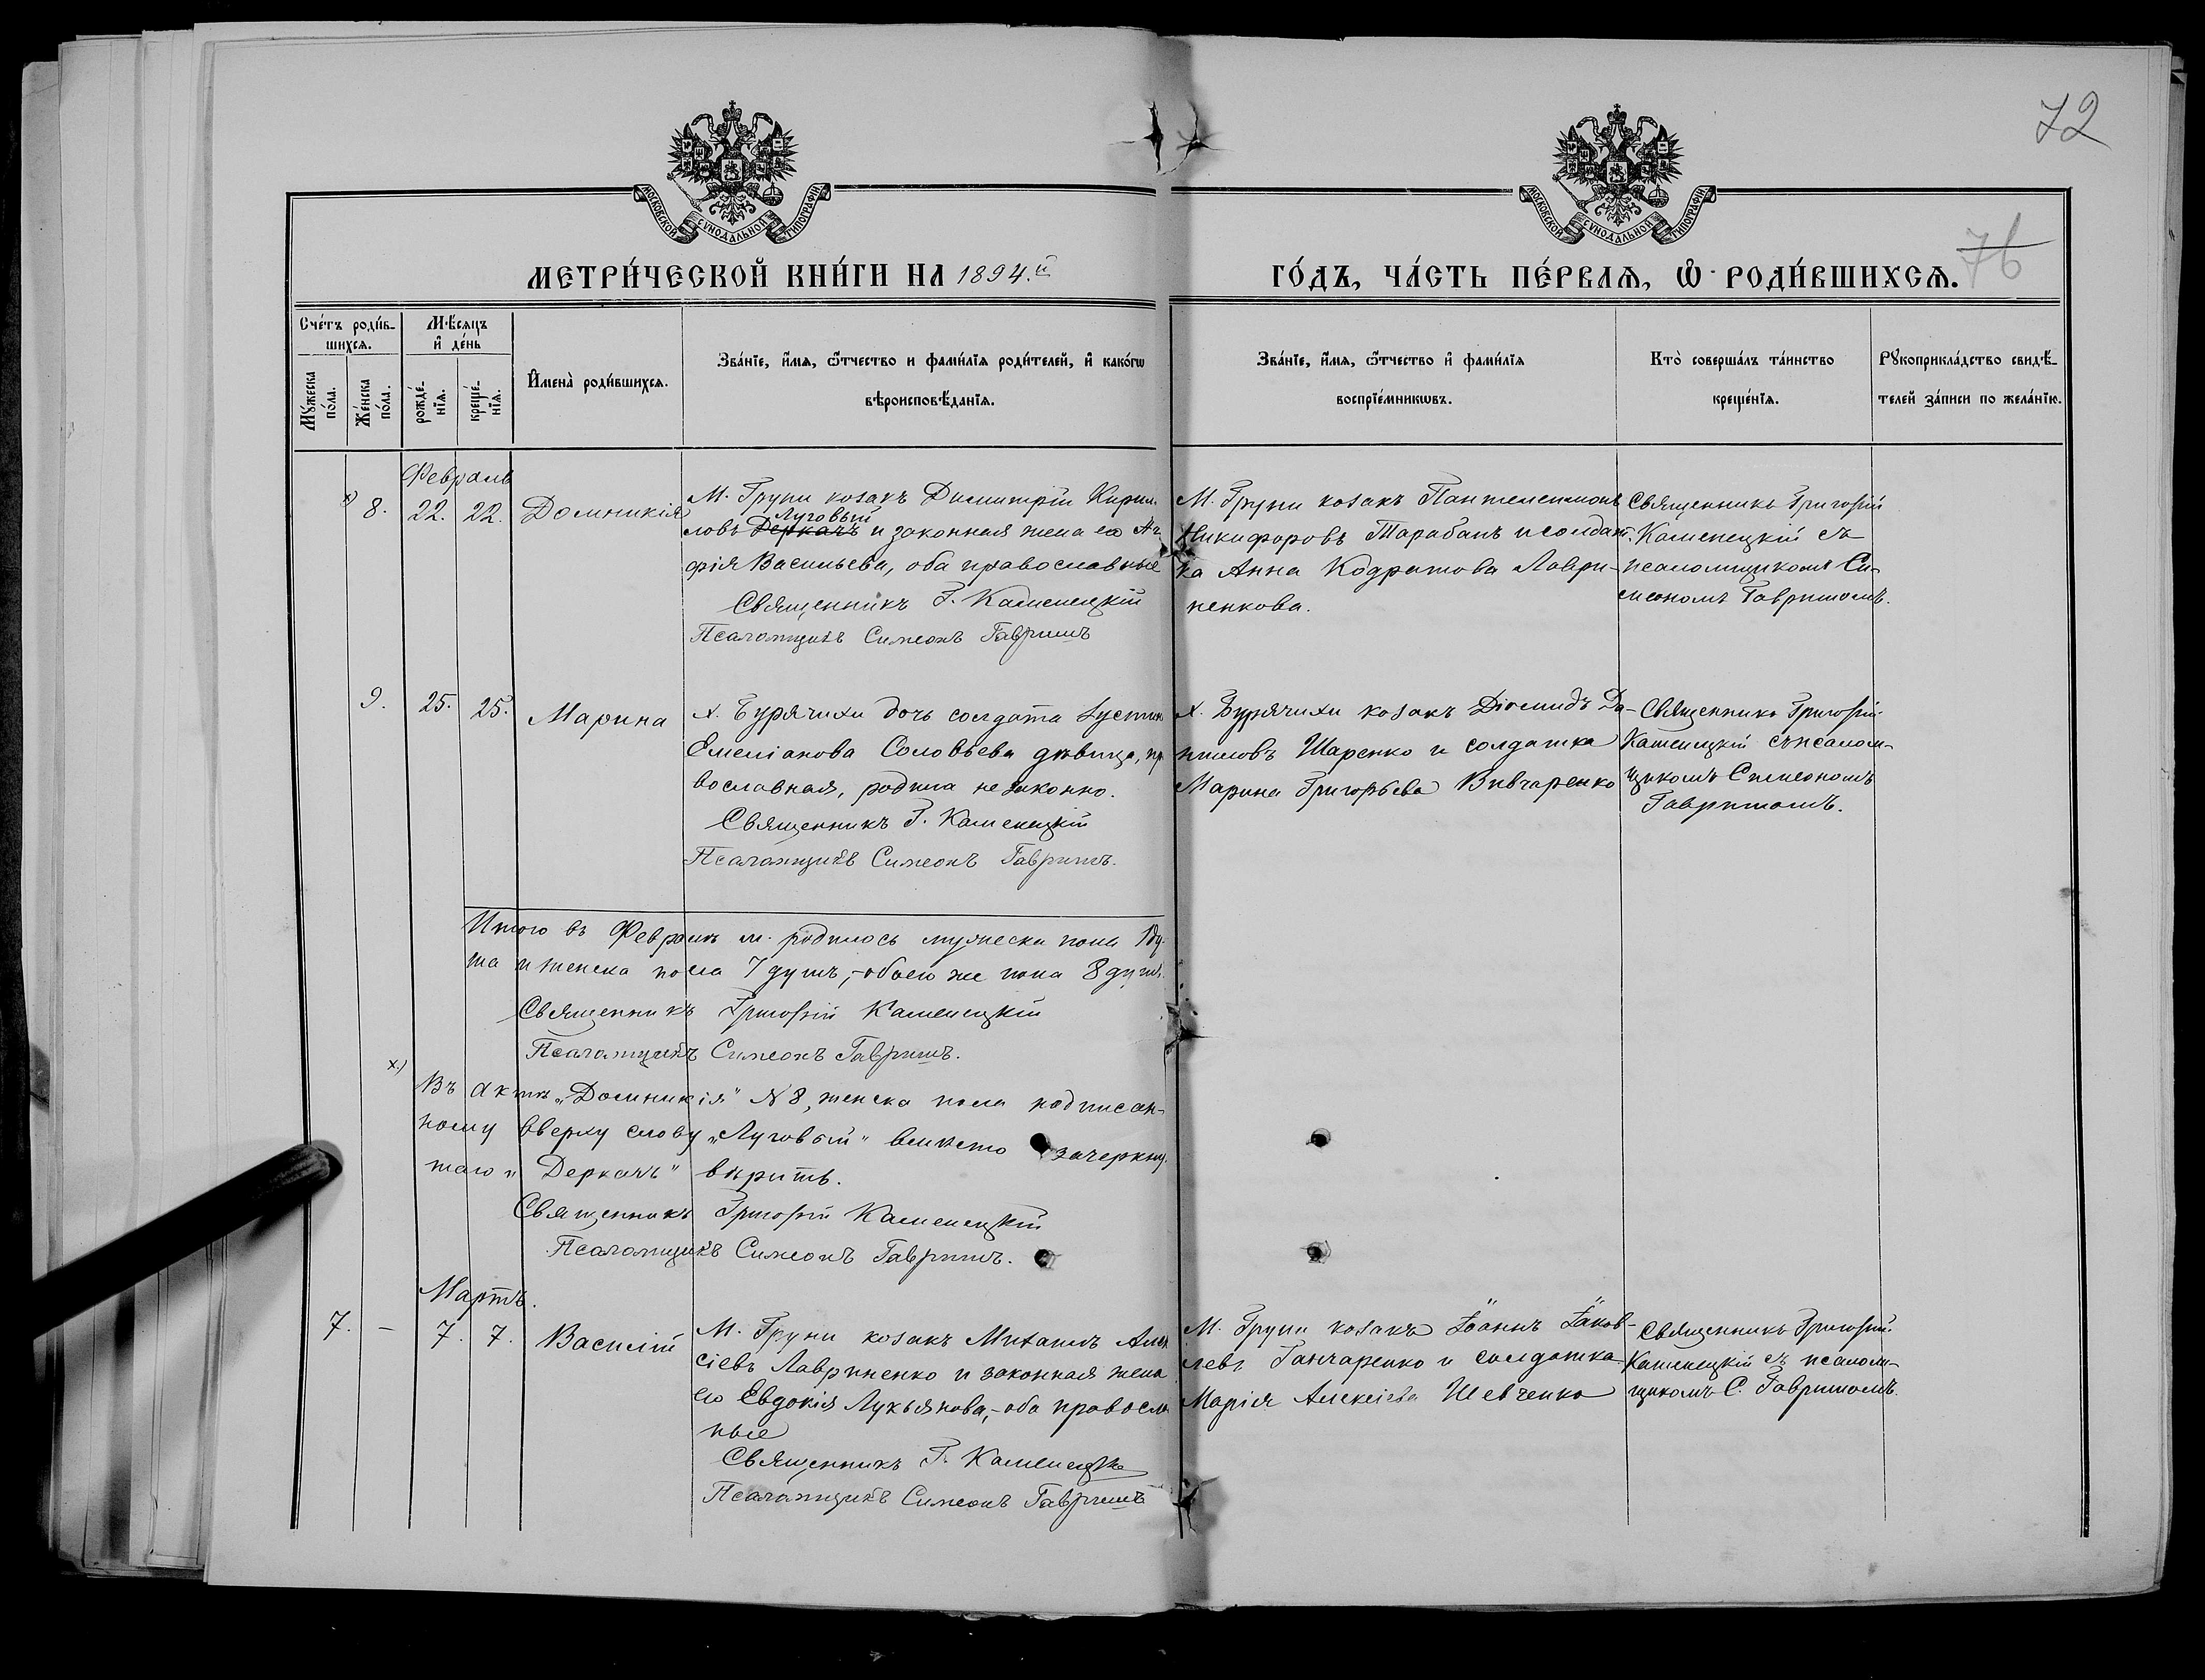 72
76
МОСКОВСКОЙ СѴНОДАЛЬНОЙ ТИПОГРАФІИ
МОСКОВСКОЙ СѴНОДАЛЬНОЙ ТИПОГРАФІИ
МЕТРИ́ЧЕСКОЙ КНИ́ГИ НА 1894.й
ГО́ДЪ, ЧА́СТЬ ПЕ́РВАѦ, Ѡ РОДИ́ВШИХСѦ.
Сче́тъ роди́в-
шихсѧ.
Мꙋ́жеска
по́ла.
Же́нска
по́ла.
Мѣ́сѧцъ
и҆ де́нь
рожде́-
нїѧ.
креще́-
нїѧ.
И҆мена̀ роди́вшихсѧ.
Зва́нїе, и҆́мѧ, ѻ҆́тчество и фами́лїѧ роди́телей, и҆ како́гѡ
вѣроисповѣ́данїѧ.
Зва́нїе, и҆́мѧ, ѻ҆́тчество и҆ фами́лїѧ
воспрїе́мникѡвъ.
Кто̀ соверша́лъ та́инство
креще́нїѧ.
Рꙋкоприкла́дство свидѣ́-
телей за́писи по жела́нїю.
Февраль
х) 8. 22. 22. Домникія
М. Груни козакъ Димитрій Кири-
Луговый
ловъ Деркачъ и законная жена его
фія Васильева, оба православные
Священникъ Г. Каменецкій
Псаломщикъ Симеонъ Гавришъ
М. Груни козакъ Пантелеимонъ
Никифоровъ Тарабанъ и солдат-
ка Анна Кодратова Лаври-
ненкова.
Священникъ Григорій
Каменецкій съ
псаломщикомъ Си-
меономъ Гавришомъ.
9. 25. 25. Марина
Х. Бурячихи дочь солдата
Емеліанова Соловьева дѣвица, пр
вославная, родила незаконно.
Священникъ Г. Каменецкій
Псаломщикъ Симеонъ Гавришъ.
Х. Бурячихи козакъ Діомидъ Да-
ниловъ Шаренко и солдатка
Марина Григорьева Вивчаренко
Священникъ Григорій
Каменецкій съ псалом-
щикомъ Симеономъ
Гавришомъ.
Итого въ Февралѣ м. родилось мужеска пола 1 ду-
ша и женска пола 7 душъ,- обоего же пола 8 душъ.
Священникъ Григорій Каменецкій
Псаломщикъ Симеонъ Гавришъ.
х) Въ актѣ „Домникія" N 8, женска пола надписан-
ному вверху слову „Луговый" вмѣсто зачеркну-
таго „Деркачъ" вѣрить.
Священникъ Григорій Каменецкій
Псаломщикъ Симеонъ Гавришъ.
Мартъ.
7. – 7. 7. Василій
М. Груни козакъ Михаилъ Алек
сіевъ Лавриненко и законная жена
его Евдокія Лукьянова,- оба правосла
ные
Священникъ Г. Каменецкій
Псаломщикъ Симеонъ Гавришъ
М. Груни козакъ Іоаннъ Іаков-
левъ Ганчаренко и солдатка
Марія Алексіева Шевченко
Священникъ Григорій
Каменецкій съ псалом-
щикомъ С. Гавришомъ.